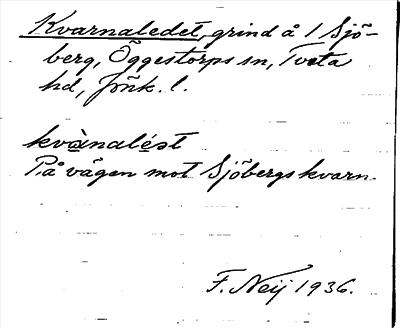 Kvarnaledet, grind å 1 Sjö-
berg, Öggestorps sn, Tveta
hd, Jönk. l.
kvànalést
På vägen mot Sjöbergs kvarn.
F. Neij 1936.